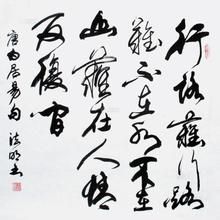 行路難行路
難不在水不在
山難在人情
反覆間
唐白居易句 法明書